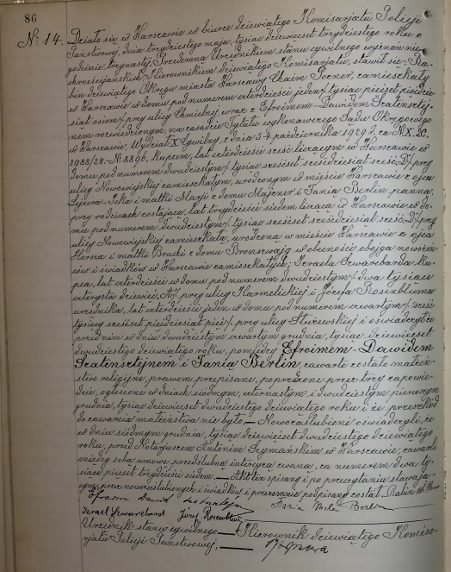 86
№ 14. Działo się w Warszawie w biurze dziewiątego Komisarjatu Policji
Państwowej, dnia trzydziestego maja, tysiąc dziewięćset trzydziestego roku o
godzinie trzynastej. Przed nami Urzędnikiem stanu cywilnego wyznań nie-
chrześcijańskich, Kierownikiem dziewiątego Komisarjatu, stawił się: Ra-
bin dziewiątego Okręgu miasta Warszawy Chaim Posner, zamieszkały
w Warszawie w domu pod numerem czterdzieści jeden, tysiąc pięćset pięćdzie-
siąt osiem, przy ulicy Chmielnej wraz z Efroimem-Dawidem Szatensztej-
nem rozwiedzionym, na zasadzie Tytułu wykonawczego Sądu Okręgowego
w Warszawie, Wydział X Cywilny z dnia 3-4 października 1929 r. za N. X. 2C.
2088/28. № 8896, kupcem, lat czterdzieści sześć liczącym w Warszawie w
domu pod numerem dwudziestym, tysiąc sześćset sześćdziesiąt sześć D, przy
ulicy Nowowiejskiej zamieszkałym, urodzonym w mieście Warszawie z ojca
i matki z domu i Fanią Berlin, panną,
przy rodzicach zostającą, lat trzydzieści siedem liczącą w Warszawie w do-
mu pod numerem dwudziestym, tysiąc sześćset sześćdziesiąt sześć D, przy
ulicy Nowowiejskiej zamieszkałą, urodzoną w mieście Warszawie z ojca
Hersza i matki z domu w obecności obojga nowożeń-
ców i świadków w Warszawie zamieszkałych: Izraela Szwarcbarda, ku-
pca, lat czterdzieści w domu pod numerem dwudziestym, dwa tysiące
czterysta dziewięć, przy ulicy Karmelickiej i Józefa Rosenbluma
urzędnika, lat czterdzieści jeden w domu pod numerem czwartym, sześć
tysięcy sześćset pięćdziesiąt pięć, przy ulicy i oświadczył, że
przed nim w dniu dwudziestym czwartym grudnia, tysiąc dziewięćset
dwudziestego dziewiątego roku, pomiędzy Efroimem-Dawidem
Szatensztejnem i Fanią Berlin, zawarte zostało małżeń-
stwo religijne, prawem przepisane, poprzedzone przez trzy zapowie-
dzie, ogłoszone w dniach siódmym, czternastym i dwudziestym pierwszym
grudnia, tysiąc dziewięćset dwudziestego dziewiątego roku i że przeszkód
do zawarcia małżeństwa nie było. — Nowozaślubieni oświadczyli, że
w dniu siódmym grudnia, tysiąc dziewięćset dwudziestego dziewiątego
roku, przed Notarjuszem Antonim Szymańskim w Warszawie, zawarli
między sobą umowę, przedślubną intercyzą zwaną, za numerem dwa ty-
siące pięćset trzydzieści siedem. — Akt ten spisany i po przeczytaniu stawają-
cym, przez nowozaślubionych i świadków i przez nas podpisany został. Rabin
Izrael Szwarcbard Józef Rosenblum Fania Berlin
Urzędnik stanu cywilnego — Kierownik dziewiątego Komisa-
rjatu Policji Państwowej, —